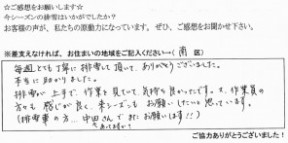 ☆ご感想をお願いします☆
今シーズンの排雪はいかがでしたか？
お客様の声が、私たちの原動力になっています。ぜひ、ご感想をお聞かせ下さい。
※差支えなければ、お住まいの地域をご記入ください→（南 区）
毎週とても丁寧に排雪して頂いて、ありがとうございました。
本当に助かりました。
排雪が上手で、作業を見ていて、気持ち良かったです。又、作業員の
方々も感じが良く、来シーズンもお願いしたいと思っています。
（排雪車の方… 中田さんで またお願いします!!）
ご協力ありがとうございました!